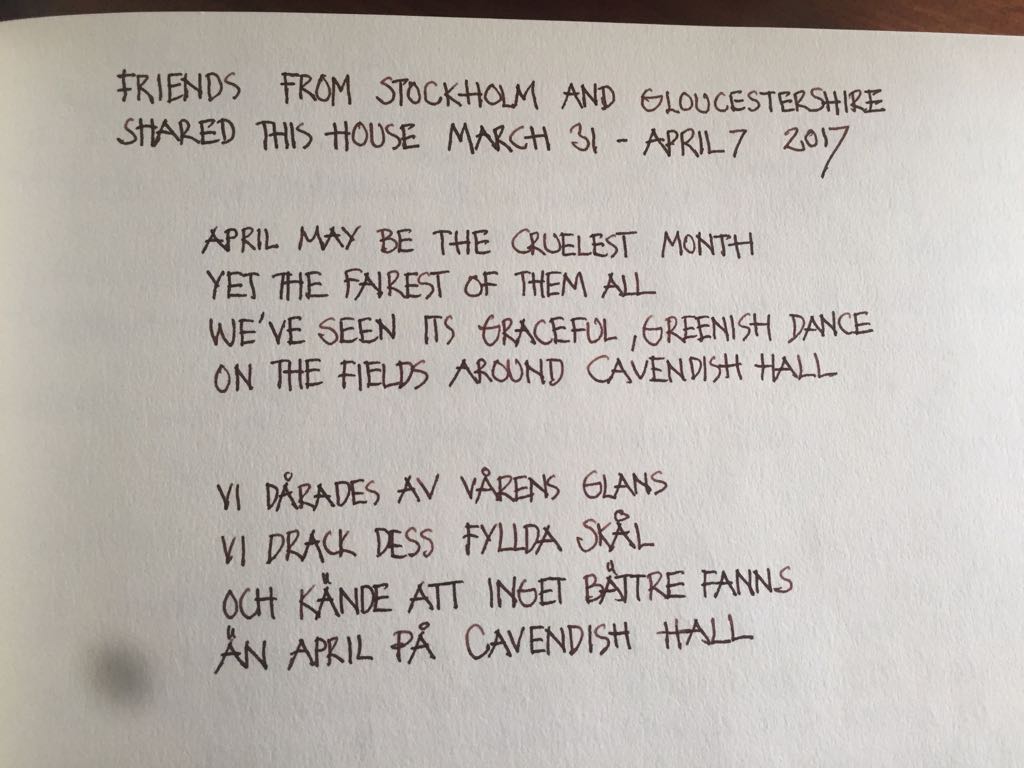 FRIENDS FROM STOCKHOLM AND GLOUCESTERSHIRE
SHARED THIS HOUSE MARCH 31 - APRIL 7 2017
APRIL MAY BE THE CRUELEST MONTH
YET THE FAIREST OF THEM ALL
WE'VE SEEN ITS GRACEFUL, GREENISH DANCE
ON THE FIELDS AROUND CAVENDISH HALL
VI DÅRADES AV VÅRENS GLANS
VI DRACK DESS FYLLDA SKÅL
OCH KÄNDE ATT INGET BÄTTRE FANNS
ÄN APRIL PÅ CAVENDISH HALL